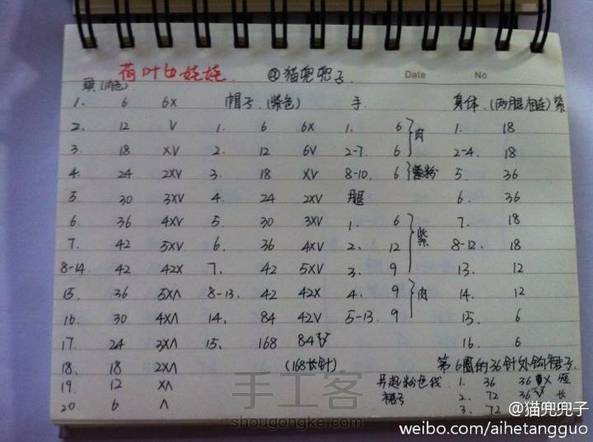 荷叶边娃娃. @猫兜兜子 Date No
頭(肉色)
1. 6 6X 帽子.(紫色) 手. 身体.(两腿相连)紫
2. 12 V 1. 6 6X 1. 6 肉 1. 18
3. 18 XV 2. 12 6V 2-7. 6 2-4. 18
4. 24 2XV 3. 18 XV 8-10. 6 紫粉 5. 36
5. 30 3XV 4. 24 2XV 腿 6. 36
6. 36 4XV 5. 30 3XV 1. 6 紫 7. 18
7. 42 5XV 6. 36 4XV 2. 12 8-12. 18
8-14 42 42X 7. 42 5XV 3. 9 13. 12
15. 36 5XΛ 8-13. 42 42X 4. 9 肉 14. 12
16. 30 4XΛ 14. 84 42V 5-13. 9 15. 6
17. 24 3XΛ 15. 168 84 16. 6
18. 18 2XΛ (168长针) 第6圈的36针外钩裙子.
19 12 XΛ 另起粉色线 1. 36 36 X 短
20. 6 Λ 裙子 2. 72 36 长
3. 72
手工客
shougongke.com
@猫兜兜子
weibo.com/aihetangguo